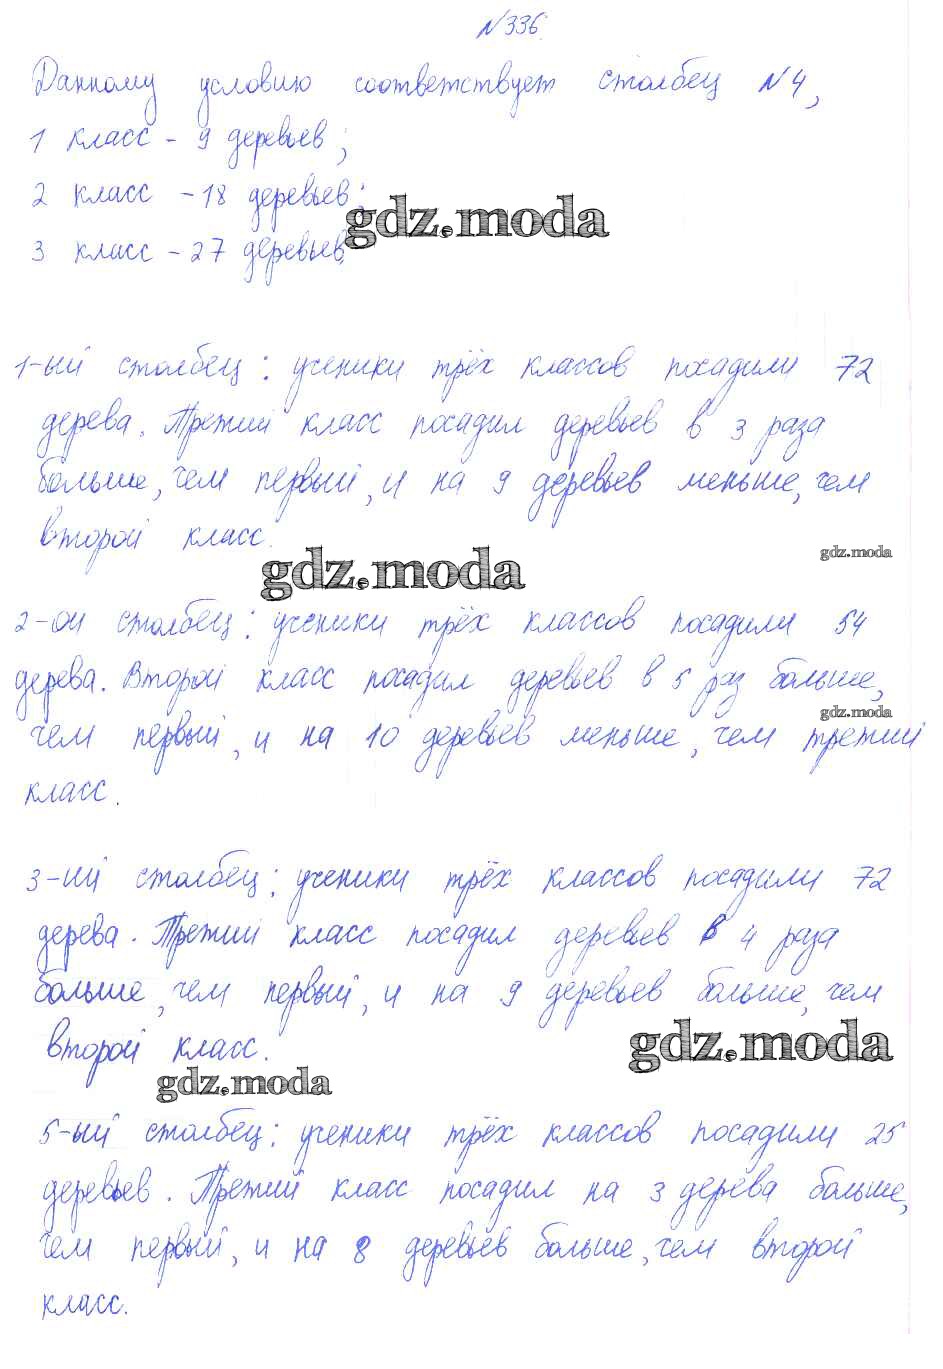 N336.
Данному условию соответствует столбец N4,
1 класс - 9 деревьев;
2 класс - 18 деревьев;
gdz.moda
3 класс - 27 деревьев.
1-ый столбец: ученики трёх классов посадили 72
дерева. Третий класс посадил деревьев в 3 раза
больше, чем первый, и на 9 деревьев меньше, чем
второй класс.
gdz.moda
gdz.moda
2-ой столбец: ученики трёх классов посадили 54
дерева. Второй класс посадил деревьев в 5 раз больше,
gdz.moda
чем первый, и на 10 деревьев меньше, чем третий
класс.
3-ий столбец: ученики трёх классов посадили 72
дерева. Третий класс посадил деревьев в 4 раза
больше, чем первый, и на 9 деревьев больше, чем
второй класс.
gdz.moda
gdz.moda
5-ый столбец: ученики трёх классов посадили 25
деревьев. Третий класс посадил на 3 дерева больше,
чем первый, и на 8 деревьев больше, чем второй
класс.